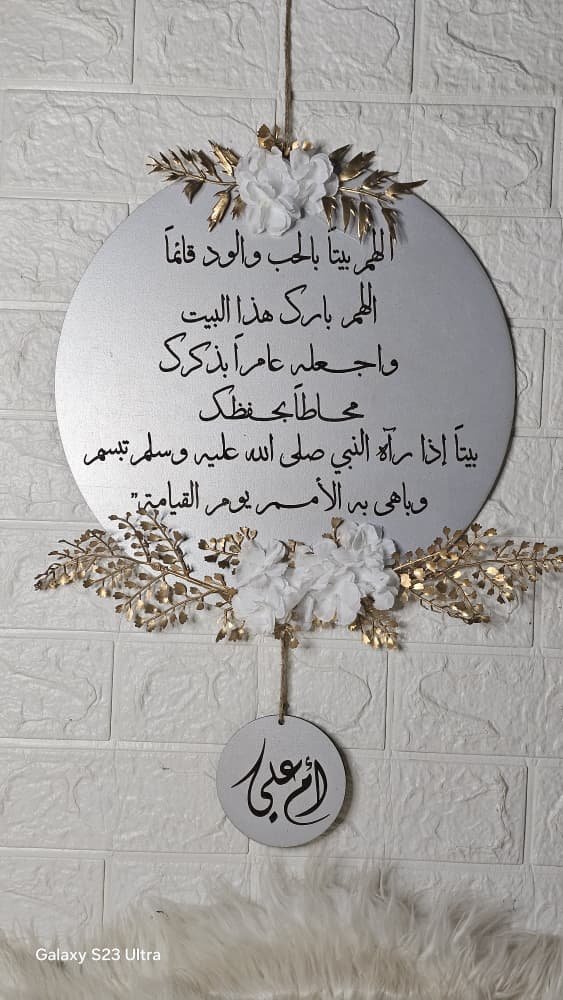 اللهم بيتاَ بالحب والود قائماَ
اللهم بارك هذا البيت
واجعله عامراَ بذكرك
محاطاَ بحفظك
بيتاَ إذا رآه النبي صلى الله عليه وسلم تبسم
وباهى به الأمم يوم القيامة"
أم علي
Galaxy S23 Ultra